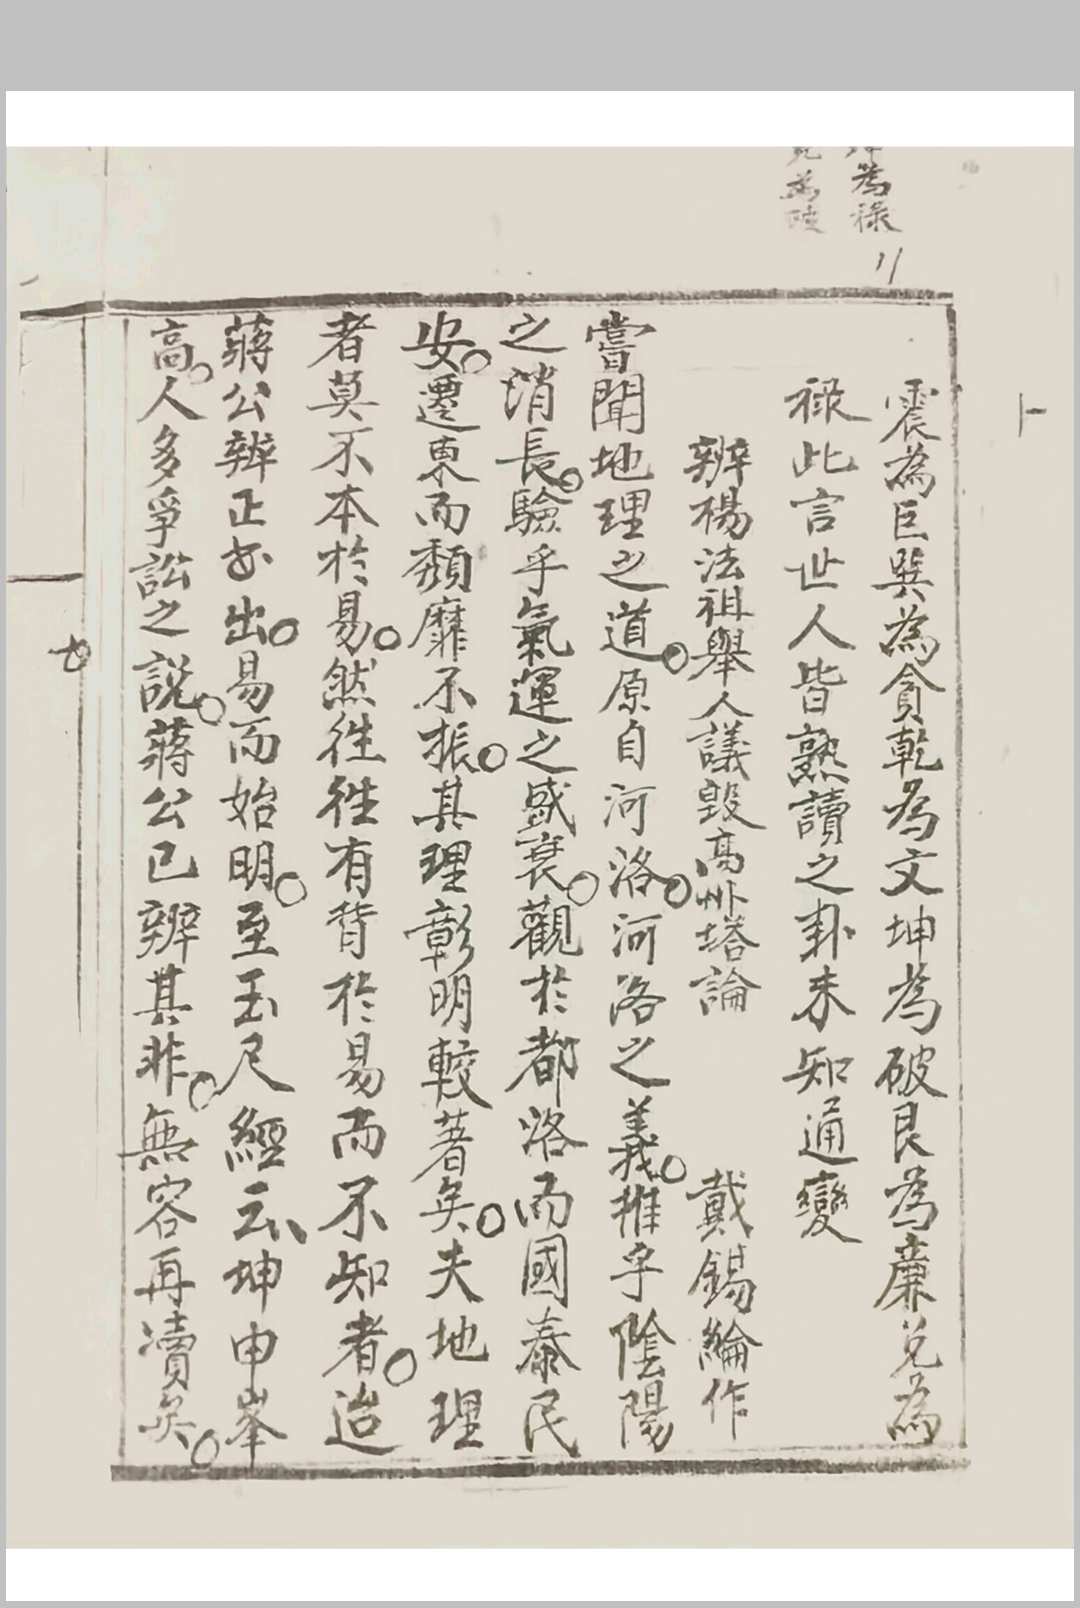 為祿
為
震為巨巽為貪乾為文坤為破艮為廉兌為
祿此言世人皆熟讀之卦未知通變
辨楊法祖舉人議毀高州塔論 戴錫綸作
嘗聞地理之道。原自河洛。河洛之義。推乎陰陽
之消長。驗乎氣運之盛衰。觀於都洛而國泰民
安。遷東而頹靡不振。其理彰明較著矣。夫地理
者莫不本於易。然徃徃有背於易而不知者。迨
蔣公辨正書出。易而始明。至玉尺經云坤申峯
高。人多爭訟之說。蔣公已辨其非。無容再瀆矣。
七